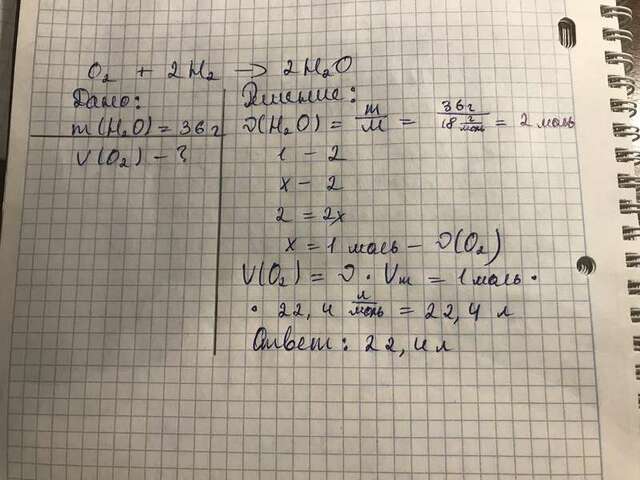 O₂ + 2H₂ → 2H₂O
Дано:
m(H₂O) = 36 г
V(O₂) - ?
Решение:
ν(H₂O) = m/M = 36 г / 18 г/моль = 2 моль
1 - 2
x - 2
2 = 2x
x = 1 моль - ν(O₂)
V(O₂) = ν · Vm = 1 моль ·
· 22,4 л/моль = 22,4 л
Ответ: 22,4 л